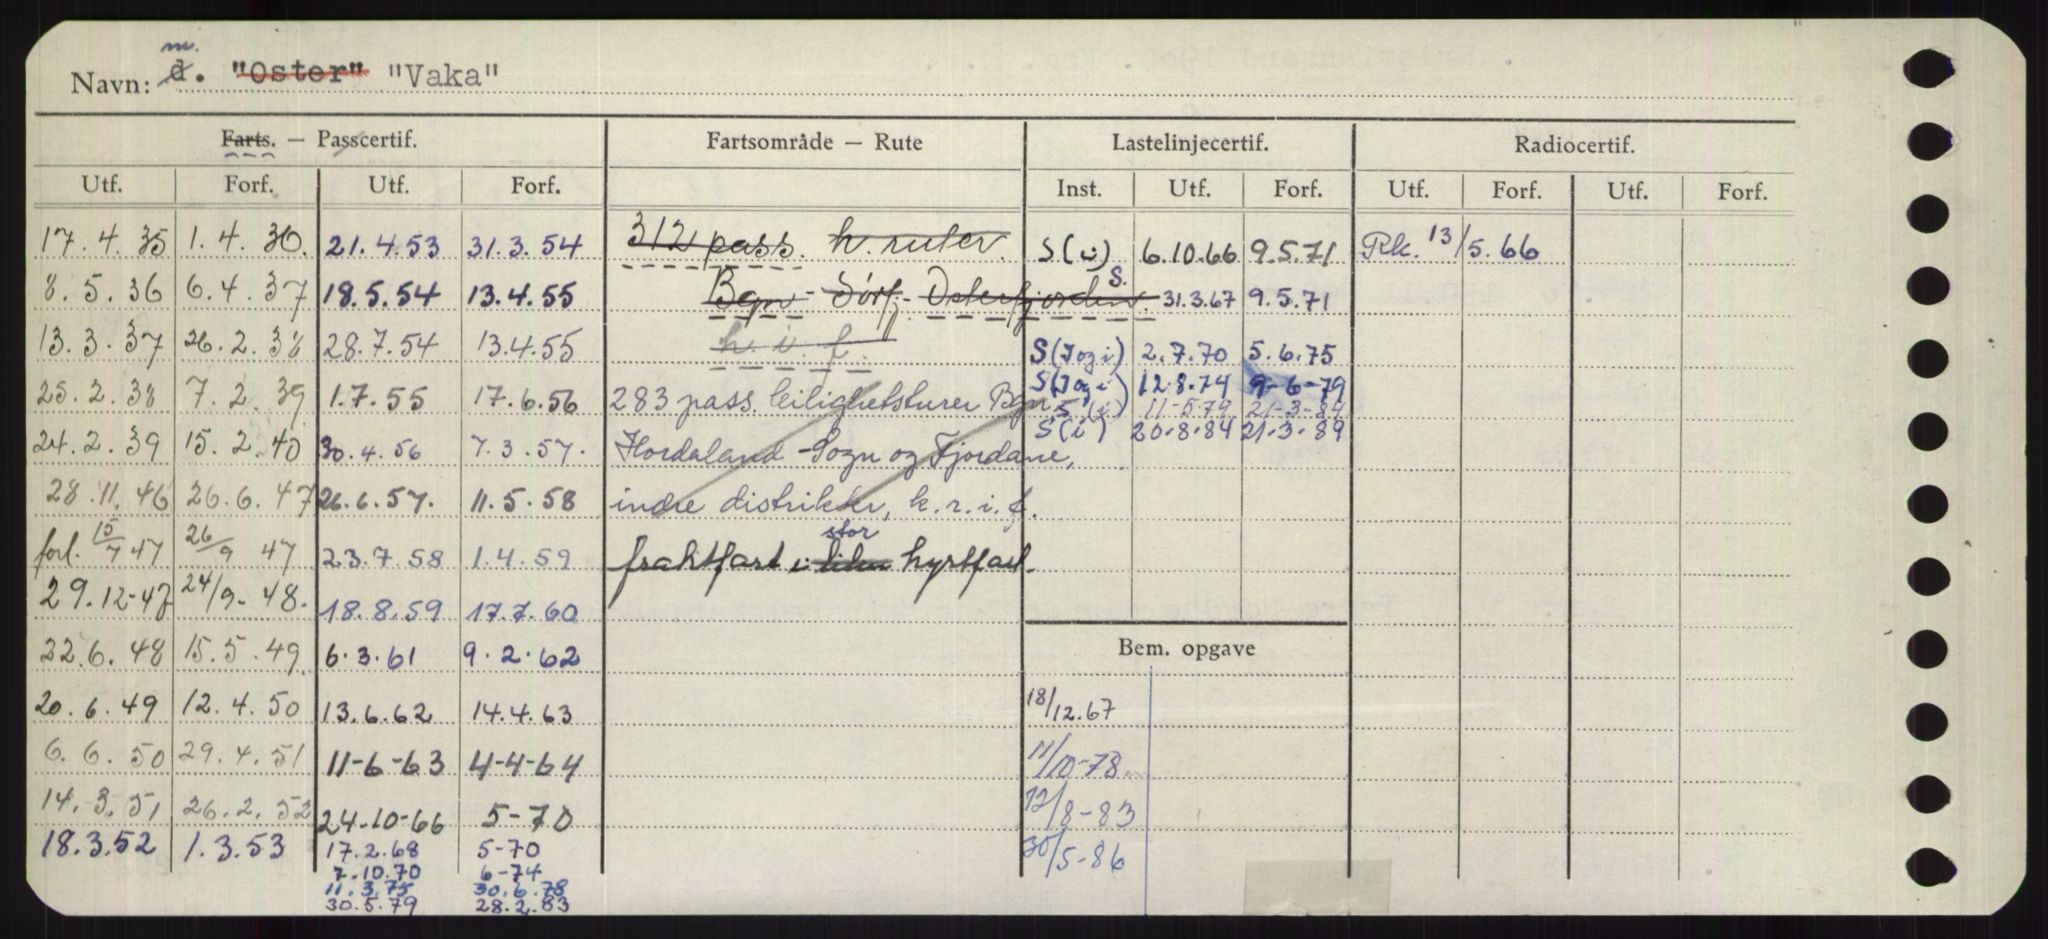 Navn: m. d. "Oster" "Vaka"
Farts. — Passcertif. Fartsområde — Rute Lastelinjecertif. Radiocertif.
Utf. Forf. Utf. Forf. Inst. Utf. Forf. Utf. Forf. Utf. Forf.
17.4.35 1.4.36. 21.4.53 31.3.54 312 pass. h. ruter. S(i) 6.10.66 9.5.71 Rk. 13/5.66
8.5.36 6.4.37 18.5.54 13.4.55 Bgn - Sörfj.- Osterfjorden. S. 31.3.67 9.5.71
13.3.37 26.2.38 28.7.54 13.4.55 h. i. f. S(J og i) 2.7.70 5.6.75
25.2.38 7.2.39 1.7.55 17.6.56 283 pass. leilighetsturer Bgn S(J og i) 12.8.74 9-6-79
S(i) 11-5.79 21-3-84
24.2.39 15.2.40 30.4.56 7.3.57. Hordaland - Sogn og Fjordane, S(i) 20.8.84 21.3.89
28.11.46 26.6.47 26.6.57. 11.5.58 indre distrikter, k.r.i.f.
forl. 15/7 47 26/9 47 23.7.58 1.4.59 fraktfart i liten stor kystfart.
29.12-47 24/9-48. 18.8.59 17.7.60
22.6.48 15.5.49. 6.3.61 9.2.62 Bem. opgave
20.6.49 12.4.50 13.6.62 14.4.63 18/12.67
6.6.50 29.4.51 11-6-63 4-4-64 11/10-78
14.3.51 26.2.52 24-10-66 5-70 12/8-83
18.3.52 1.3.53 17.2.68 5-70 30/5-86
7.10.70 6-74
11.3.75 30.6.78
30.5.79 28.2.83